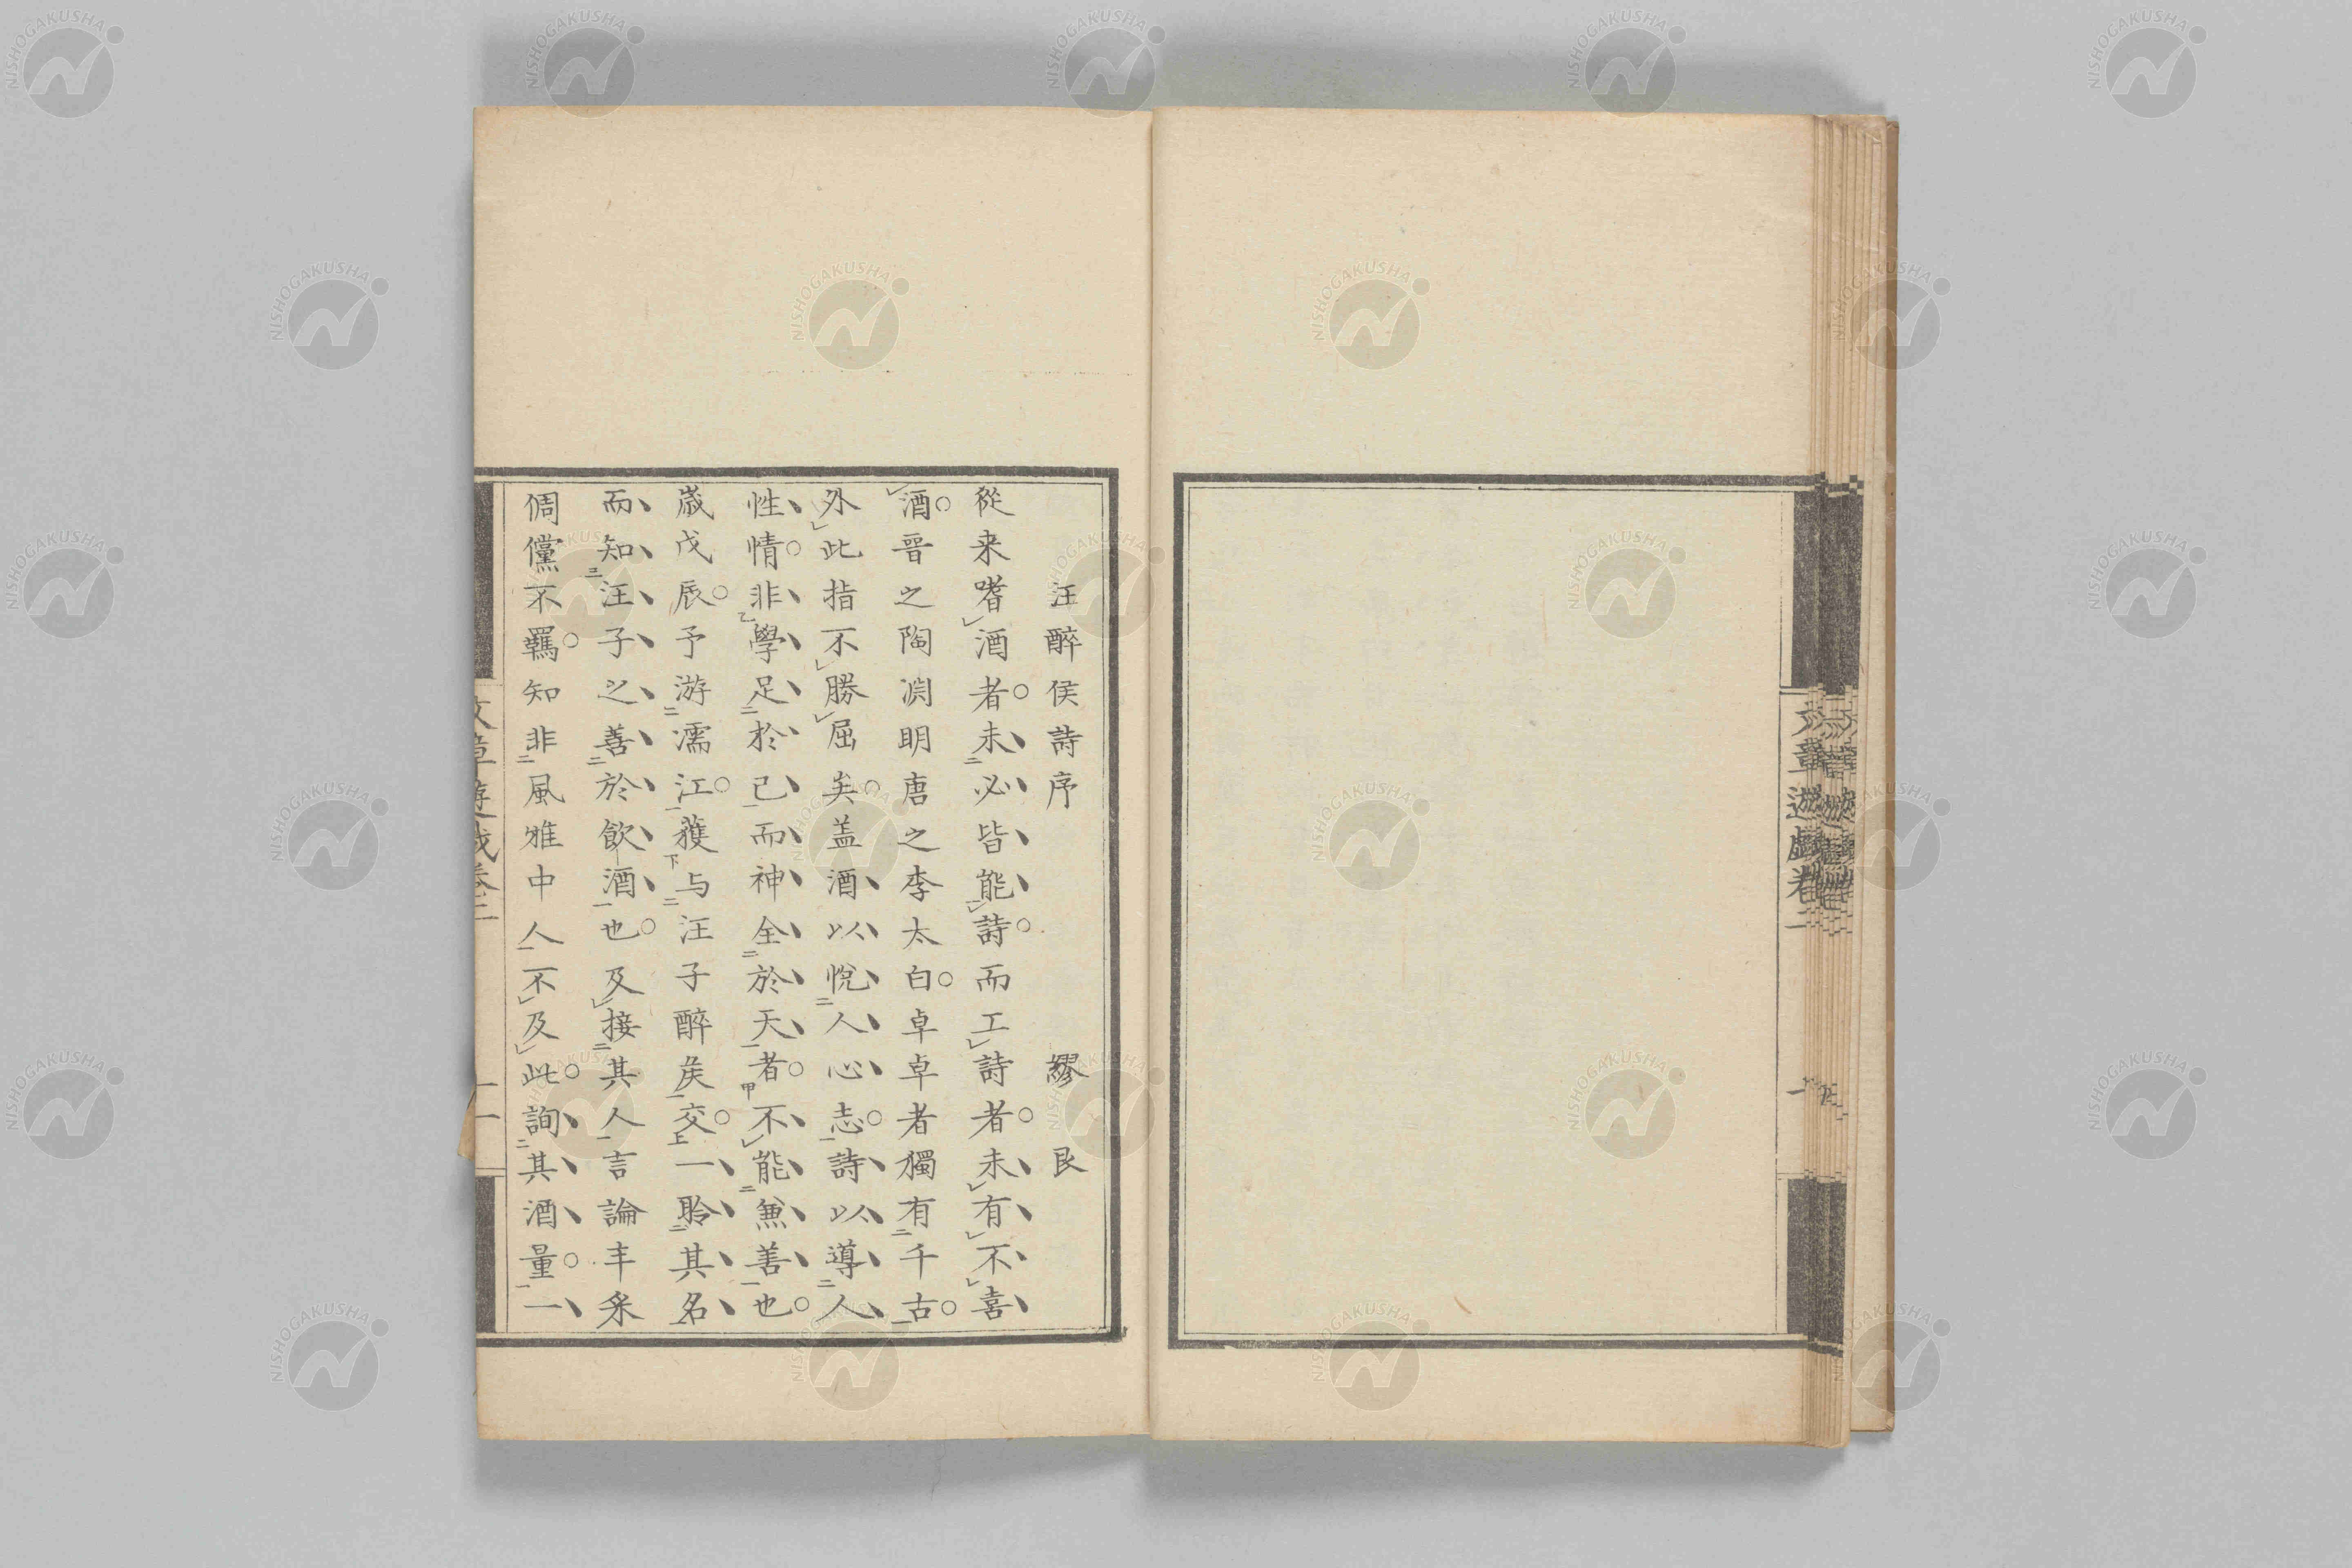 汪醉侯詩序　繆艮
從来嗜酒者。未必皆能詩。而工詩者。未有不喜
酒。晉之陶渊明唐之李太白。卓卓者獨有千古。
外此指不勝屈矣。盖酒以悅人心志。詩以導人
性情。非學足於己而神全於天者。不能兼善也。
嵗戊辰。予游濡江。獲与汪子醉矦交。一聆其名
而知汪子之善於飲酒也。及接其人言論丰采
倜儻不羈。知非風雅中人不及此。詢其酒量。一
文章遊戯卷二
二
文章遊戯卷二
一
NISHOGAKUSHA